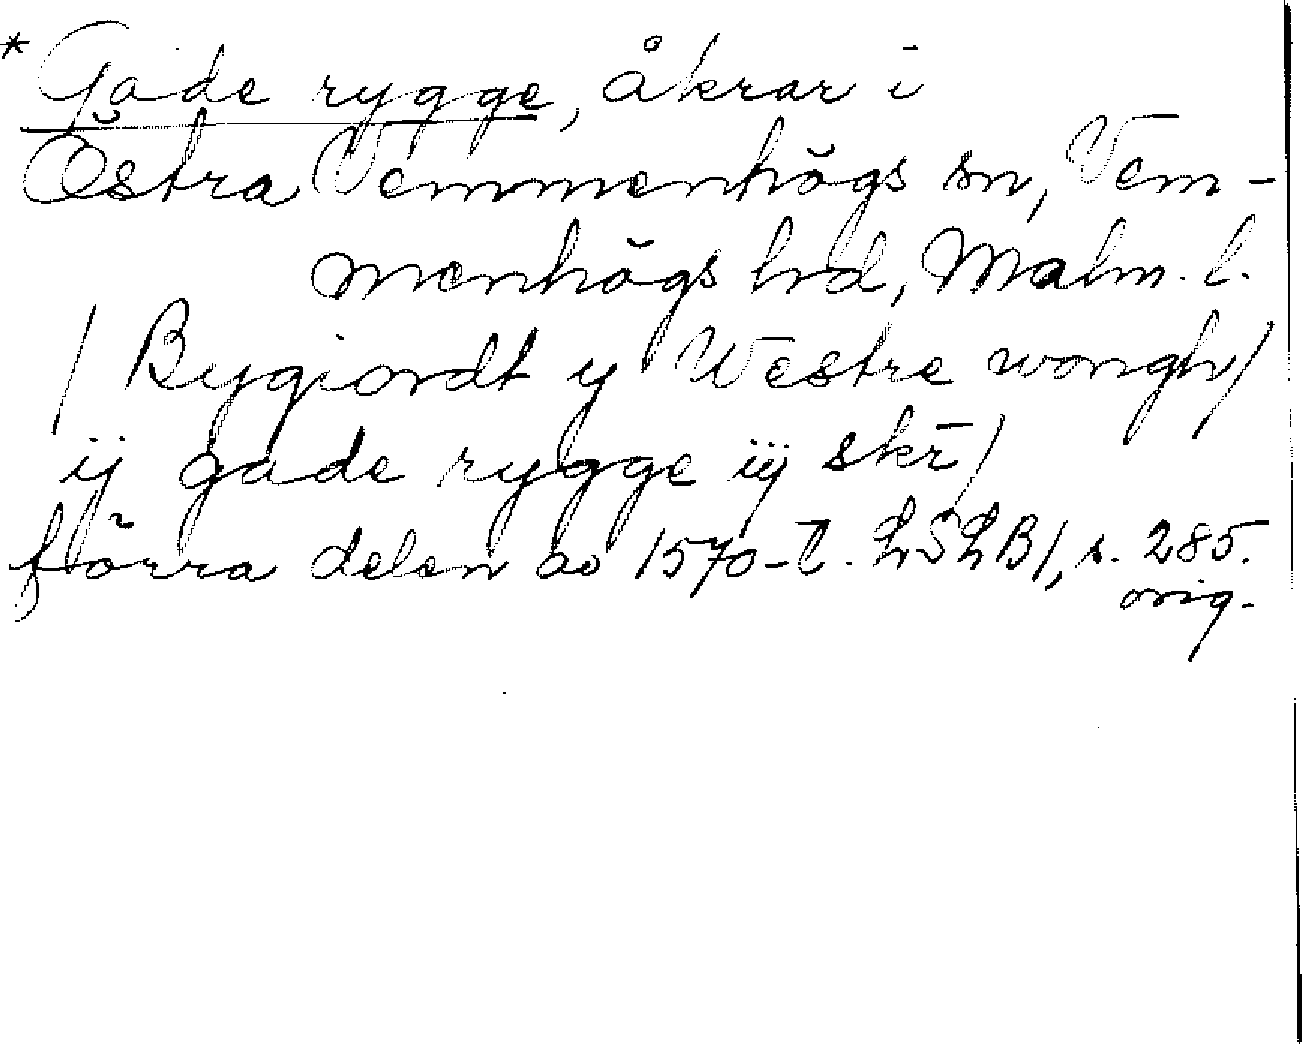 * Gade rygge, åkrar i
Östra Vemmenhögs sn, Vem-
menhögs hd, Malm. l.
/ Bygiordt y Westre wongh /
ij gade rygge iij skr̄ /
förra delen av 1570-t. LSLB/, s. 285.
orig.